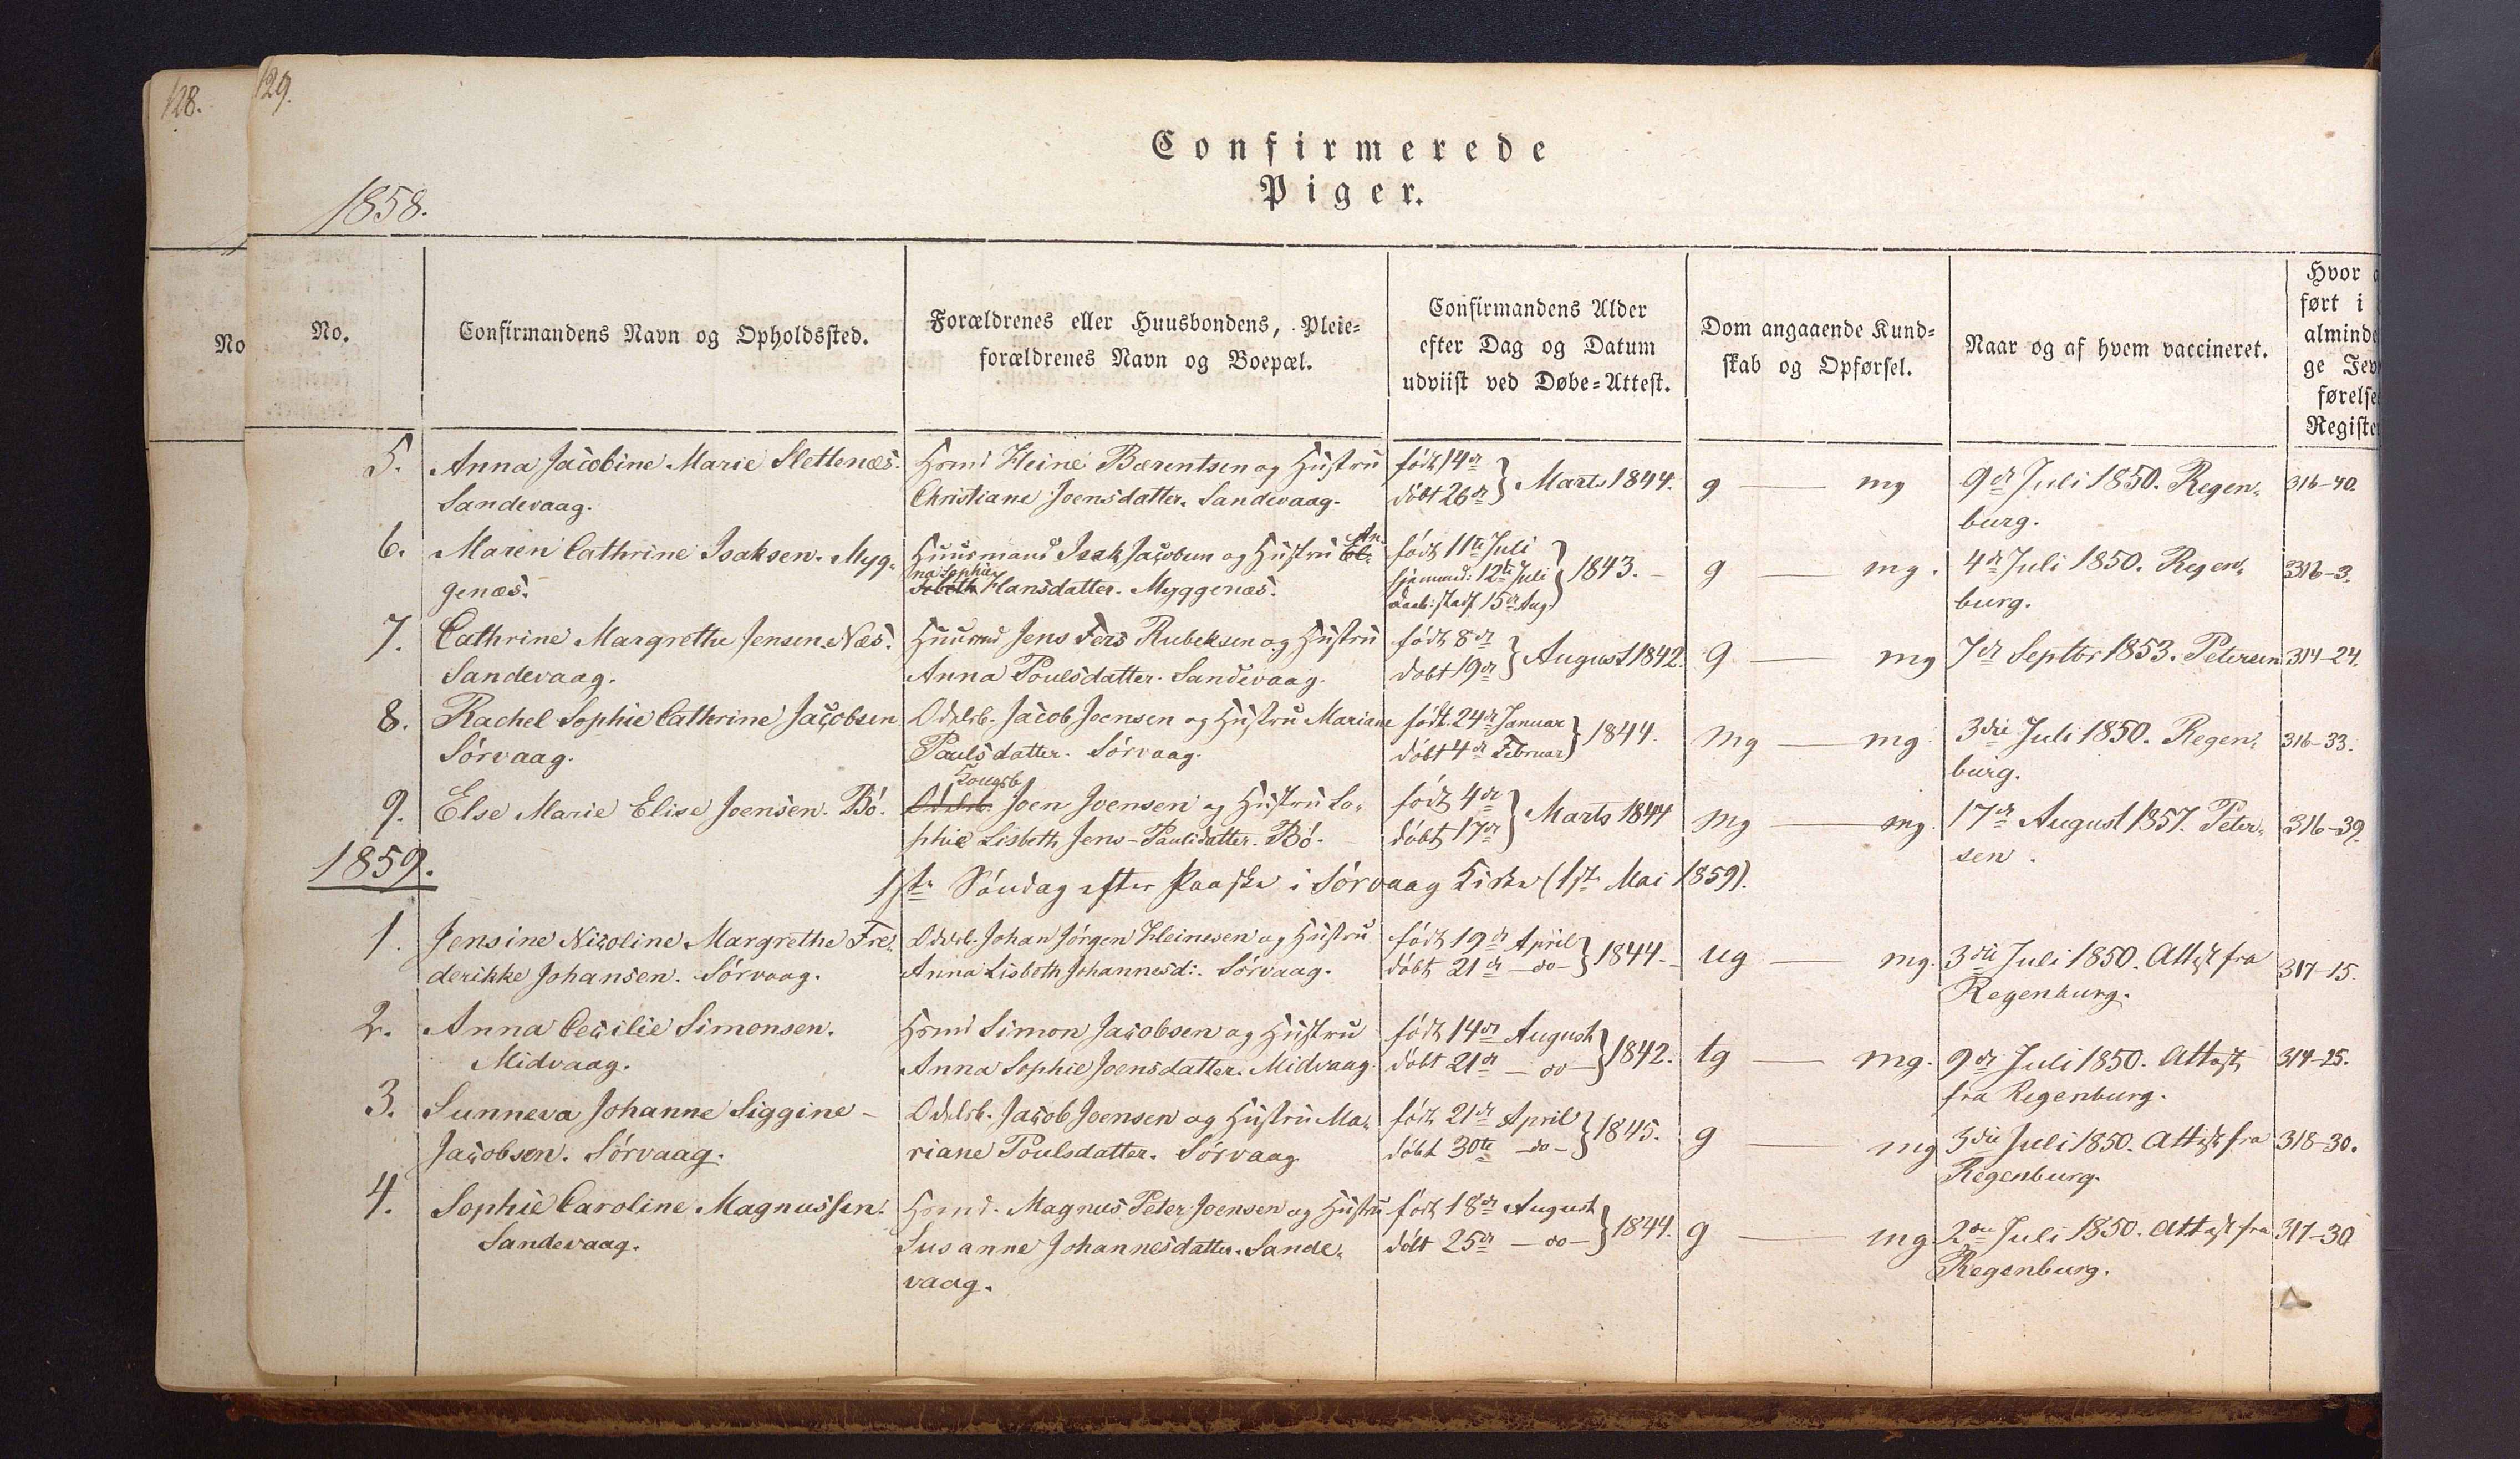 128.
129.
Confirmerede
Piger.
1858.
No
No.
Confirmandens Navn og Opholdssted.
Forældrenes eller Huusbondens, Pleie-
forældrenes Navn og Boepæl.
Confirmandens Alder
efter Dag og Datum
udviist ved Døbe-Attest.
Dom angaaende Kund-
skab og Opførsel.
Naar og af hvem vaccineret.
Hvor
ført i
alminde
ge Jev
førelse
Registe
5.
Anna Jacobine Marie Slettenæs.
Sandevaag.
Hsmd Heine Bærentsen og Hustru
Christiane Joensdatter. Sandevaag.
født 14de
döbt 26de } Marts 1844.
g — mg
9de Juli 1850. Regen-
burg.
316-40.
6.
Maren Cathrine Isaksen. Myg-
genæs.
Huusmand Isak Jacobsen og Hustru El- An-
na Sophie
Hansdatter. Myggenæs.
født 11te Juli
hjemmed: 12te Juli
daab: stadf 15de Aug. } 1843.
g — mg.
4de Juli 1850. Regen-
burg.
316-3.
7.
Cathrine Margrethe Jensen. Næs.
Sandevaag.
Huusmd Jens Fers Rubeksen og Hustru
Anna Poulsdatter. Sandevaag.
født 8de
döbt 19de } August 1842.
g — mg
7de Septbr 1853. Petersen
314-24.
8.
Rachel Sophie Cathrine Jacobsen
Sörvaag.
Odelsb. Jacob Joensen og Hustru Mariane
Pauls datter. Sörvaag.
født. 24de Januar
döbt 4de Februar } 1844.
mg — mg
3die Juli 1850. Regen-
burg.
316-33.
9.
Else Marie Elise Joensen. Bö.
Kongsb
Odelsb. Joen Joensen og Hustru So-
phie Lisbeth Jens-Paulsdatter. Bö.
født 4de
döbt 17de } Marts 1844
mg — mg.
17de August 1857. Peter-
sen.
316-39.
1859.
1ste Søndag efter Paaske i Sörvaag Kirke (1ste Mai 1859).
1.
Jensine Nicoline Margrethe Fre-
derikke Johansen. Sörvaag.
Odelsb. Johan Jörgen Heinesen og Hustru
Anna Lisbeth Johannesd:. Sörvaag.
født 19de April
döbt 21de — do — } 1844.
ug — mg.
3die Juli 1850. Attest fra
Regenburg.
317-15.
2.
Anna Cecilie Simonsen.
Midvaag.
Hsmd Simon Jacobsen og Hustru
Anna Sophie Joensdatter. Midvaag.
født 14de August
döbt 21de — do — } 1842.
tg — mg.
9de Juli 1850. Attest
fra Regenburg.
314-25.
3.
Sunneva Johanne Siggine-
Jacobsen. Sörvaag.
Odelsb. Jacob Joensen og Hustru Ma-
riane Poulsdatter. Sörvaag
født 21de April
döbt 30te — do — } 1845.
g — mg
3die Juli 1850. Attest fra
Regenburg.
318-30.
4.
Sophie Caroline Magnussen.
Sandevaag.
Hsmd. Magnus Peter Joensen og Hustru
Susanne Johannesdatter. Sande-
vaag.
født 18de August
döbt 25de — do — } 1844.
g — mg
2den Juli 1850. Attest fra
Regenburg.
317-30